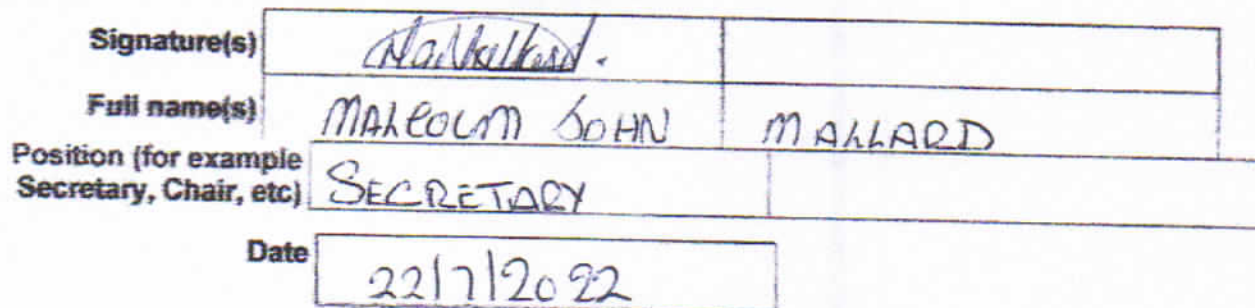 Signature(s)
Full name(s) MALCOLM JOHN MALLARD
Position (for example
Secretary, Chair, etc) SECRETARY
Date 22/7/2022